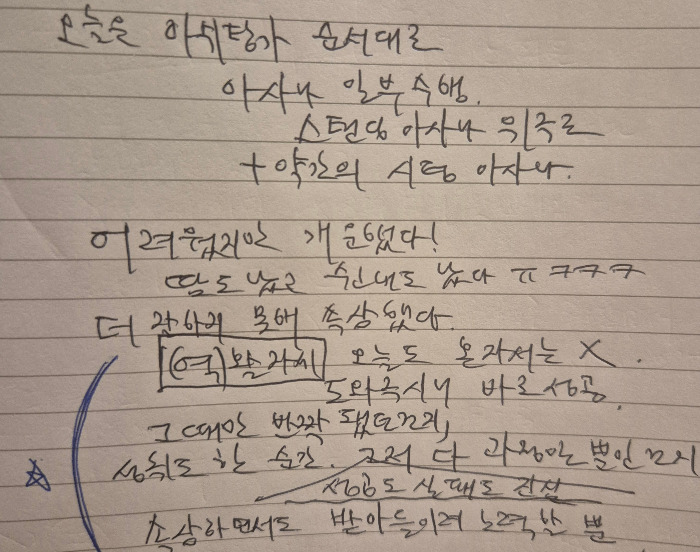 오늘은 아쉬탕가 순서대로
아사나 일부 수행.
스탠딩 아사나 위주로
+ 약간의 시팅 아사나.
어려웠지만 개운했다!
땀도 났고 신내도 났다 ㅠㅋㅋㅋ
더 잘하지 못해 속상했다.
(역)활자세 오늘도 혼자서는 X.
도와주시니 바로 성공.
그때만 반짝 됐던건지,
성취도 한 순간. 그저 다 과정일 뿐인 건지
성공도 실패도 건설
속상하면서도 받아들이려 노력할 뿐